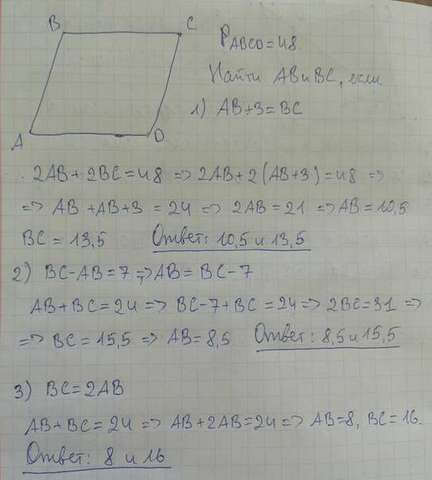 B C
A D
P ABCD = 48
Найти AB и BC, если
1) AB+3=BC
2AB+2BC=48 => 2AB+2(AB+3)=48 =>
=> AB+AB+3=24 => 2AB=21 => AB=10,5
BC=13,5 Ответ: 10,5 и 13,5
2) BC-AB=7 => AB=BC-7
AB+BC=24 => BC-7+BC=24 => 2BC=31 =>
=> BC=15,5 => AB=8,5 Ответ: 8,5 и 15,5
3) BC=2AB
AB+BC=24 => AB+2AB=24 => AB=8, BC=16.
Ответ: 8 и 16